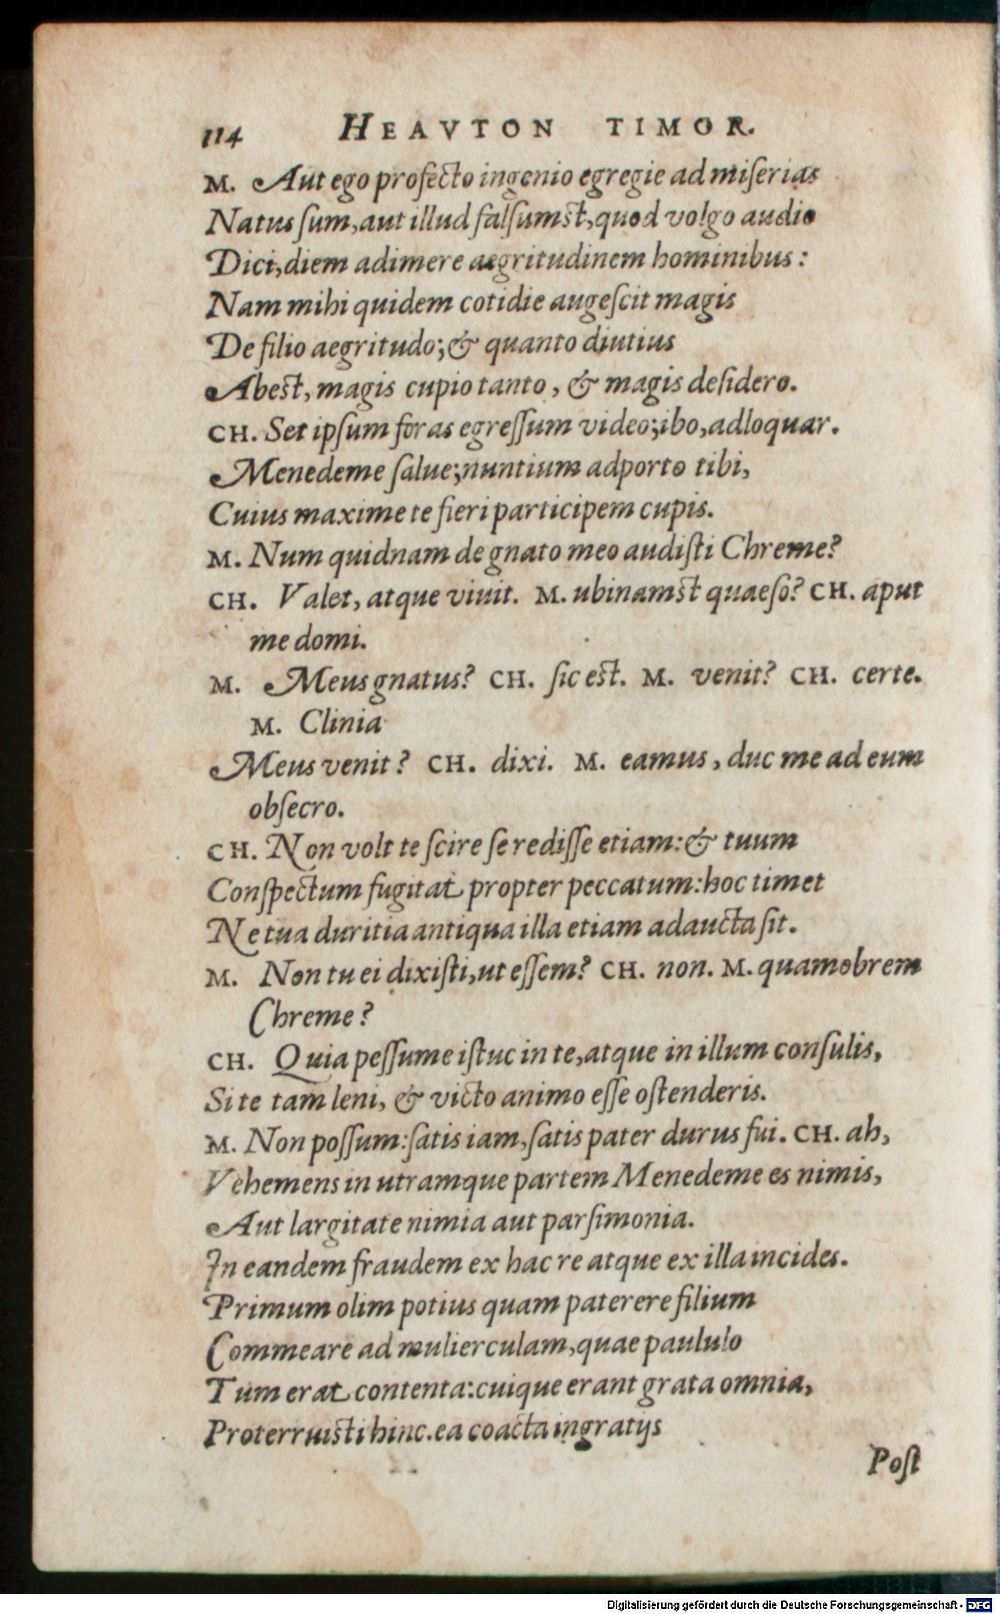 114 HEAVTON TIMOR.
M. Aut ego profecto ingenio egregie ad miserias
Natus sum, aut illud falsumst, quod volgo audio
Dici, diem adimere aegritudinem hominibus:
Nam mihi quidem cotidie augescit magis
De filio aegritudo; & quanto diutius
Abest, magis cupio tanto, & magis desidero.
CH. Set ipsum foras egressum video; ibo, adloquar.
Menedeme salue; nuntium adporto tibi,
Cuius maxime te fieri participem cupis.
M. Num quidnam de gnato meo audisti Chreme?
CH. Valet, atque viuit. M. ubinamst quaeso? CH. aput
me domi.
M. Meus gnatus? CH. sic est. M. venit? CH. certe.
M. Clinia
Meus venit? CH. dixi. M. eamus, duc me ad eum
obsecro.
CH. Non volt te scire se redisse etiam: & tuum
Conspectum fugitat propter peccatum: hoc timet
Ne tua duritia antiqua illa etiam adaucta sit.
M. Non tu ei dixisti, ut essem? CH. non. M. quamobrem
Chreme?
CH. Quia pessume istuc in te, atque in illum consulis,
Si te tam leni, & victo animo esse ostenderis.
M. Non possum: satis iam, satis pater durus fui. CH. ah,
Vehemens in utramque partem Menedeme es nimis,
Aut largitate nimia aut parsimonia.
In eandem fraudem ex hac re atque ex illa incides.
Primum olim potius quam paterere filium
Commeare ad mulierculam, quae paululo
Tum erat contenta: cuique erant grata omnia,
Proterruisti hinc. ea coacta ingratijs
Post
Digitalisierung gefördert durch die Deutsche Forschungsgemeinschaft - DFG